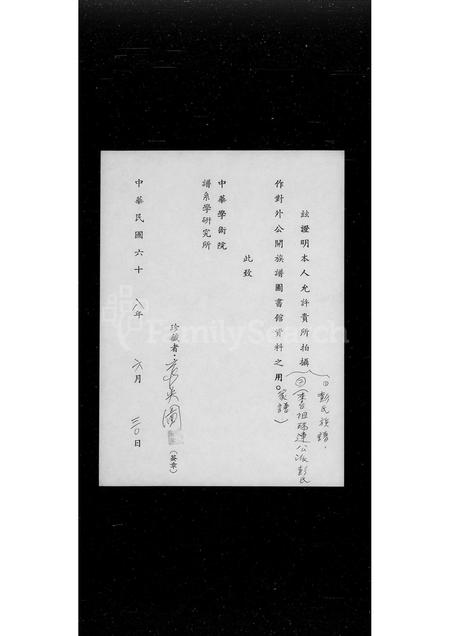 茲證明本人允許貴所拍攝
①彭氏族譜．
②(來台祖瑞連公派彭氏
家譜)
作對外公開族譜圖書館資料之用。
此致
中華學術院
譜系學研究所
珍藏者．英圖(簽章)
中華民國六十八年六月三十日
FamilySearch